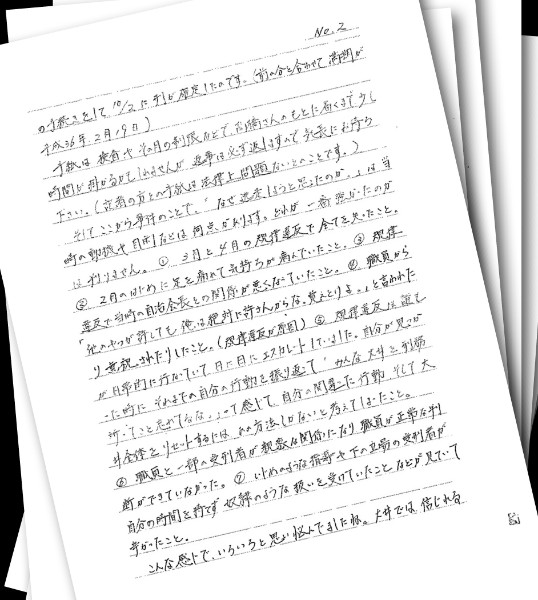 No.2
の手続きをして10/2に刑が確定したのです。(前の分と合わせて満期が
平成36年2月19日)
手紙は検査やその月の制限などで、高橋さんのもとに届くまで少し
時間が掛かるかもしれませんが返事は必ず返しますので気長にお待ち
下さい。(記者の方との手紙は法律上問題ないとのことです。)
そしてここから事件のことで、「なぜ逃走しようと思ったのか。」は当
時の動機や目的などは何点かあります。どれが一番強かったのか
は判りません。①3月と4月の規律違反で全てを失ったこと。
②2月のはじめに足を痛めて気持ちが痛んでいたこと。③規律
違反で当時の自治会長との関係が悪くなっていたこと。④職員から
「他のやつが許しても俺は絶対に許さんからな。覚えとけよ。」と言われた
り無視されたりしたこと。(規律違反が原因)⑤規律違反は誰で
が日常的に行なっていて日に日にエスカレートしていました。自分が見つか
った時にそれまでの自分の行動を振り返って「みんな大井を刑務
所ってこと忘れてるな。」って感じて、自分の間違った行動そして大
井全体をリセットするには、この方法しかないと考えてしまったこと。
⑥職員と一部の受刑者が親密な関係になり職員が正常な判
断ができていなかった。⑦いじめのような指導や下の立場の受刑者が
自分の時間を持てず奴隷のような扱いを受けていたことなどが見ていて
辛かったこと。
こんな感じで、いろいろと思い悩んでましたね。大井では、信じれる